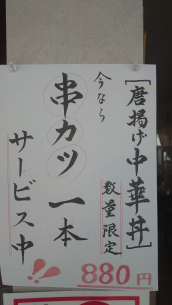 [唐揚げ中華丼]
数量限定
今なら
串カツ一本
サービス中
!!
880円